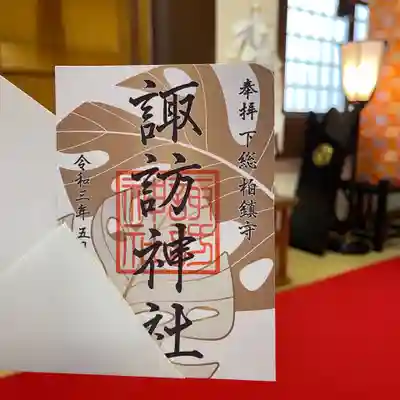 奉拝 下総柏鎮守
諏訪神社
令和三年 五